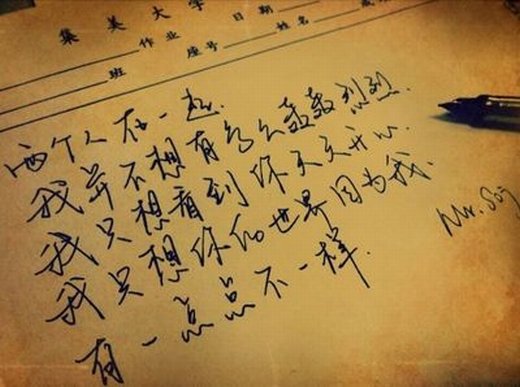 集美大学
作业 日期
班 座号 姓名
两个人在一起.
我并不想有多么轰轰烈烈.
我只想看到你天天开心.
我只想你的世界因为我.
有一点点不一样.
Mr. Song